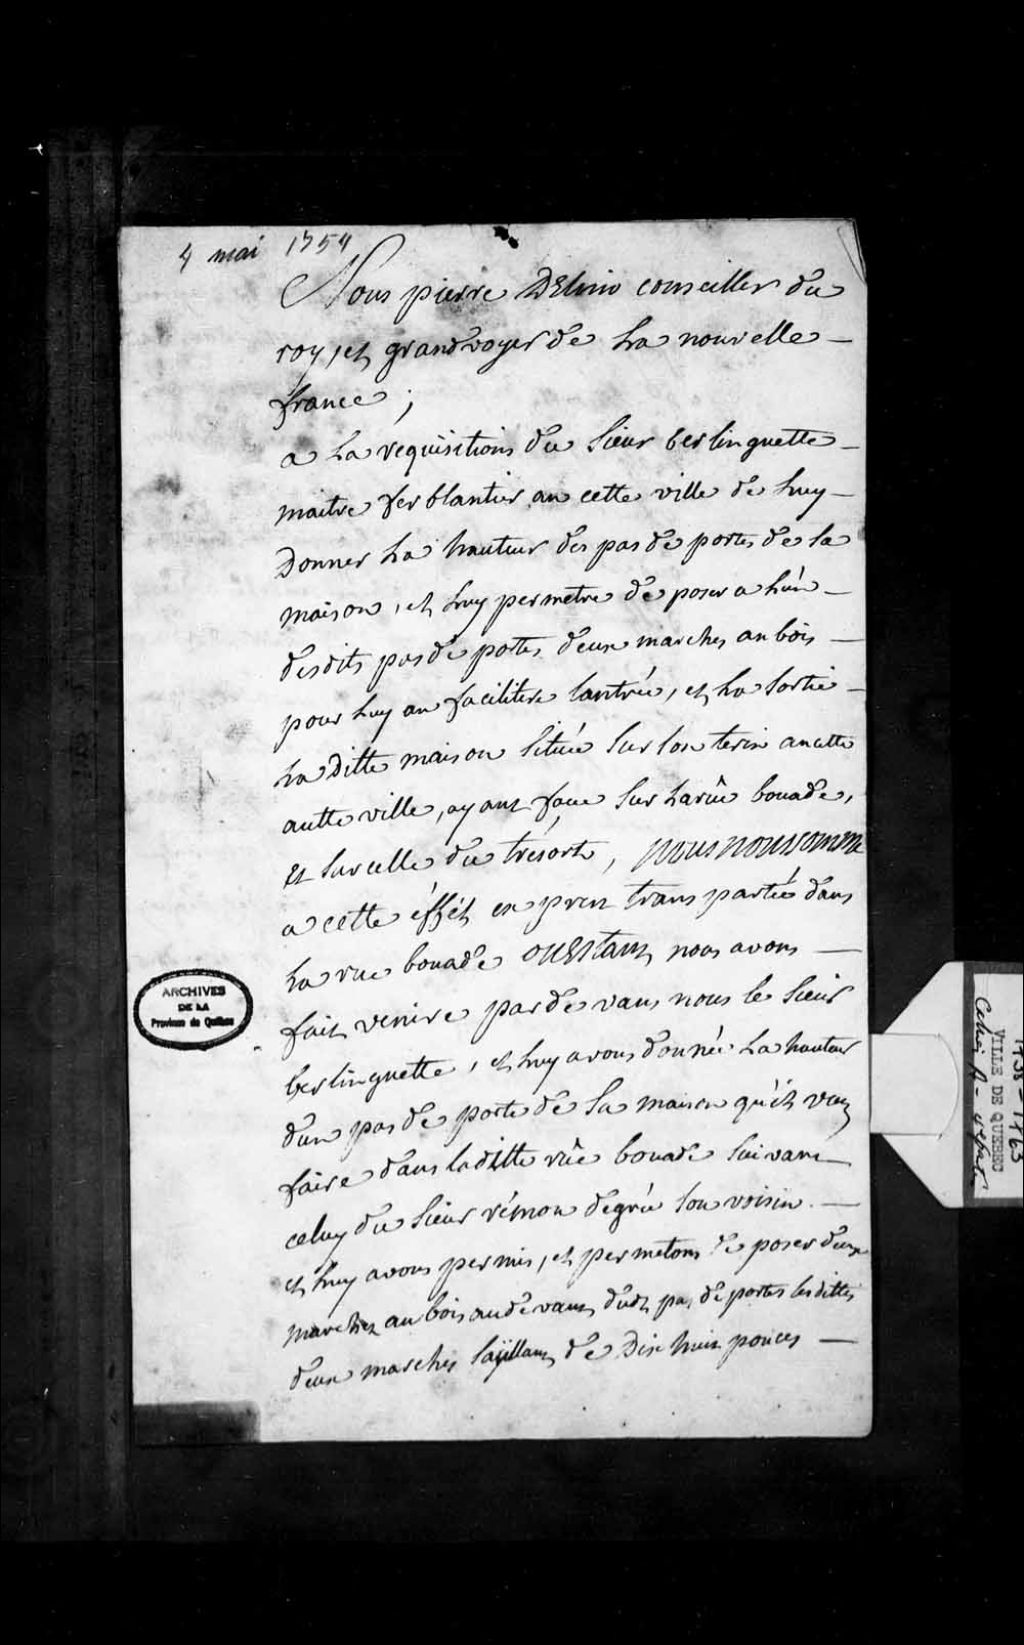 4 mai 1754
Nous pierre DElino conseiller du
roy, et grand voyer de La nouvelle
france ;
a La requisition du Sieur berlinguette
maitre ferblantier an cette ville de Luy
Donner La hauteur des pas de portes de sa
maison, et Luy permetre de poser a Lun
desdits pas de portes deux marches an bois
pour Luy an facilitere lantrée, et La sortie
La Ditte maison Située Sur son terin
autte ville, ayant face Sur La rüe bouade,
et Sur celle du trésorte, Nous nous somme
a cette éffét ex pret trans partée dans
La rue bouade OUESTANT nous avons
fait venire par de vant nous le Sieur
berlinguette, et Luy avons donnée La hauteur
dun pas de porte de Sa maison qu'il veut
faire dans laditte rüe bouade Suivant
celuy du Sieur rémon degrée Son voisin.
et Luy avons permis, et permetons de poser deux
marches an bois au devant dudt pas de portes lesdittes
deux marches Sayillant de Dix huit pouces
ARCHIVES
DE LA
Province de Québec
VILLE DE QUEBEC